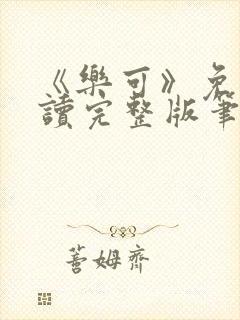 《樂可》免
讀完整版筆
蓍姆齊